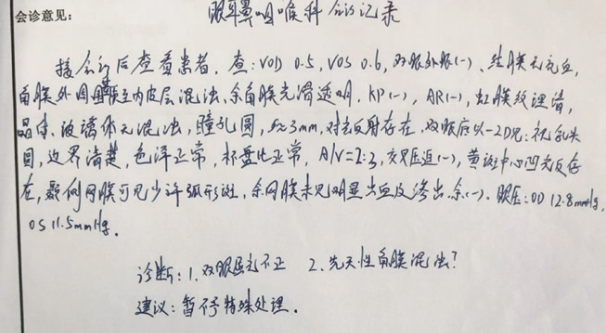 会诊意见:
眼耳鼻咽喉科会诊记录
接会诊后查看患者,查:VOD 0.5,VOS 0.6,双眼外眼(-),结膜无充血,
角膜外周内皮层混浊,余角膜光滑透明,KP(-),AR(-),虹膜纹理清,
晶体、玻璃体无混浊,瞳孔圆,≈3mm,对光反射存在,双眼底以-2D见:视乳头
圆,边界清楚,色泽正常,杯盘比正常,A/V=2:3,交叉压迫(-),黄斑中心凹光反存
在,颞侧网膜可见少许弧形斑,余网膜未见明显出血及渗出,余(-).眼压:OD 12.8mmHg,
OS 11.5mmHg.
诊断:1.双眼屈光不正 2.先天性角膜混浊?
建议:暂不予特殊处理.